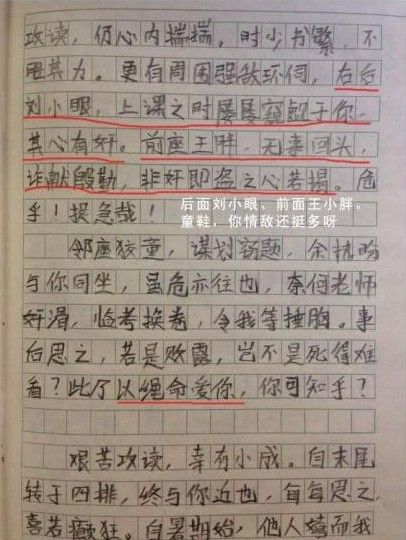 攻读，仍心内揣揣。时少书繁，不
胜其力。更有周围强敌环伺，右后
刘小眼，上课之时屡屡窥觎于你，
其心有奸。前座王胖，无事回头，
诈献殷勤，非奸即盗之心若揭。危
乎！提急哉！
后面刘小眼、前面王小胖。
童鞋，你情敌还挺多呀
邻座狡童，谋划窃题，余精盼
与你同坐，虽危亦往也，奈何老师
奸滑，临考换卷，令我等捶胸。事
后思之，若是败露，岂不是死得难
看？此乃以绳命爱你，你可知乎？
艰苦攻读，幸有小成。自末尾
转于四排，终与你近也，每每思之，
喜若癫狂。自暑期始，他人嬉而我